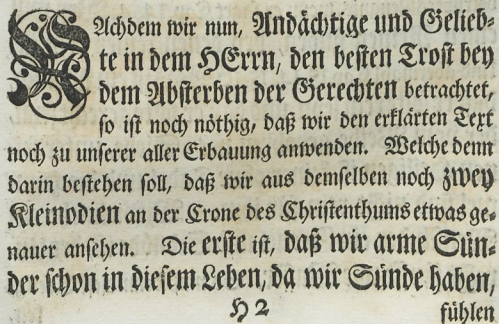 NAchdem wir nun, Andächtige und Gelieb-
te in dem HErrn, den besten Trost bey
dem Absterben der Gerechten betrachtet,
so ist noch nöthig, daß wir den erklärten Text
noch zu unserer aller Erbauung anwenden. Welche denn
darin bestehen soll, daß wir aus demselben noch zwey
Kleinodien an der Crone des Christenthums etwas ge-
nauer ansehen. Die erste ist, daß wir arme Sün-
der schon in diesem Leben, da wir Sünde haben,
H 2 fühlen